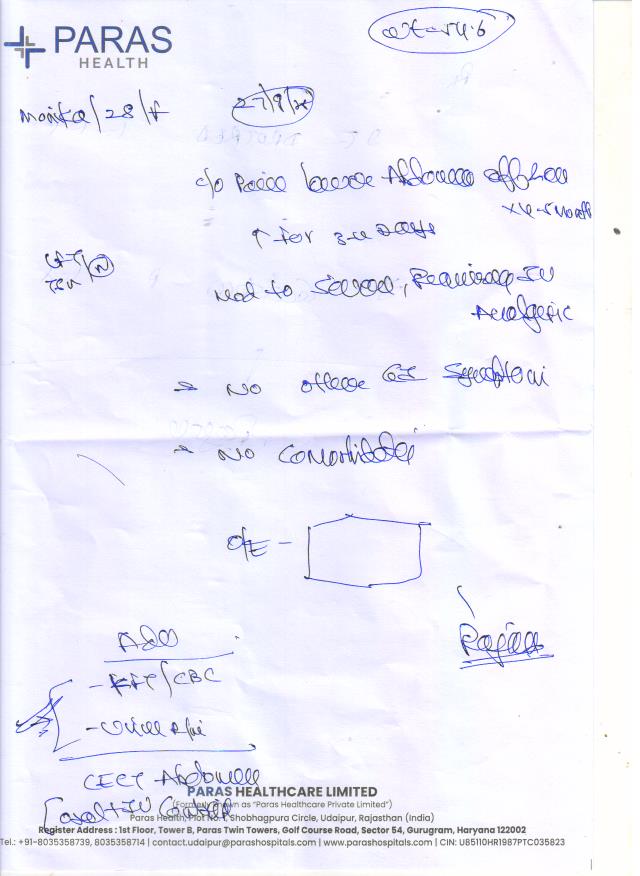 PARAS
HEALTH
wt - 54.6
Monika/28/F
27/9/
c/o Pain lower Abdomen off & on
x 4-5 Months
↑ for 3-4 Days
LFT
TSH
N
Mod to Severe, Requiring IV
Analgesic
No other GI Symptom
No Comorbidities
O/E -
Adv
- KFT/CBC
- Urine R/M
CECT Abdomen
oral + IV Contrast
PARAS HEALTHCARE LIMITED
(Formerly known as "Paras Healthcare Private Limited")
Paras Health, Plot No. 1, Shobhagpura Circle, Udaipur, Rajasthan (India)
Register Address : 1st Floor, Tower B, Paras Twin Towers, Golf Course Road, Sector 54, Gurugram, Haryana 122002
Tel.: +91-8035358739, 8035358714 | contact.udaipur@parashospitals.com | www.parashospitals.com | CIN: U85110HR1987PTC035823